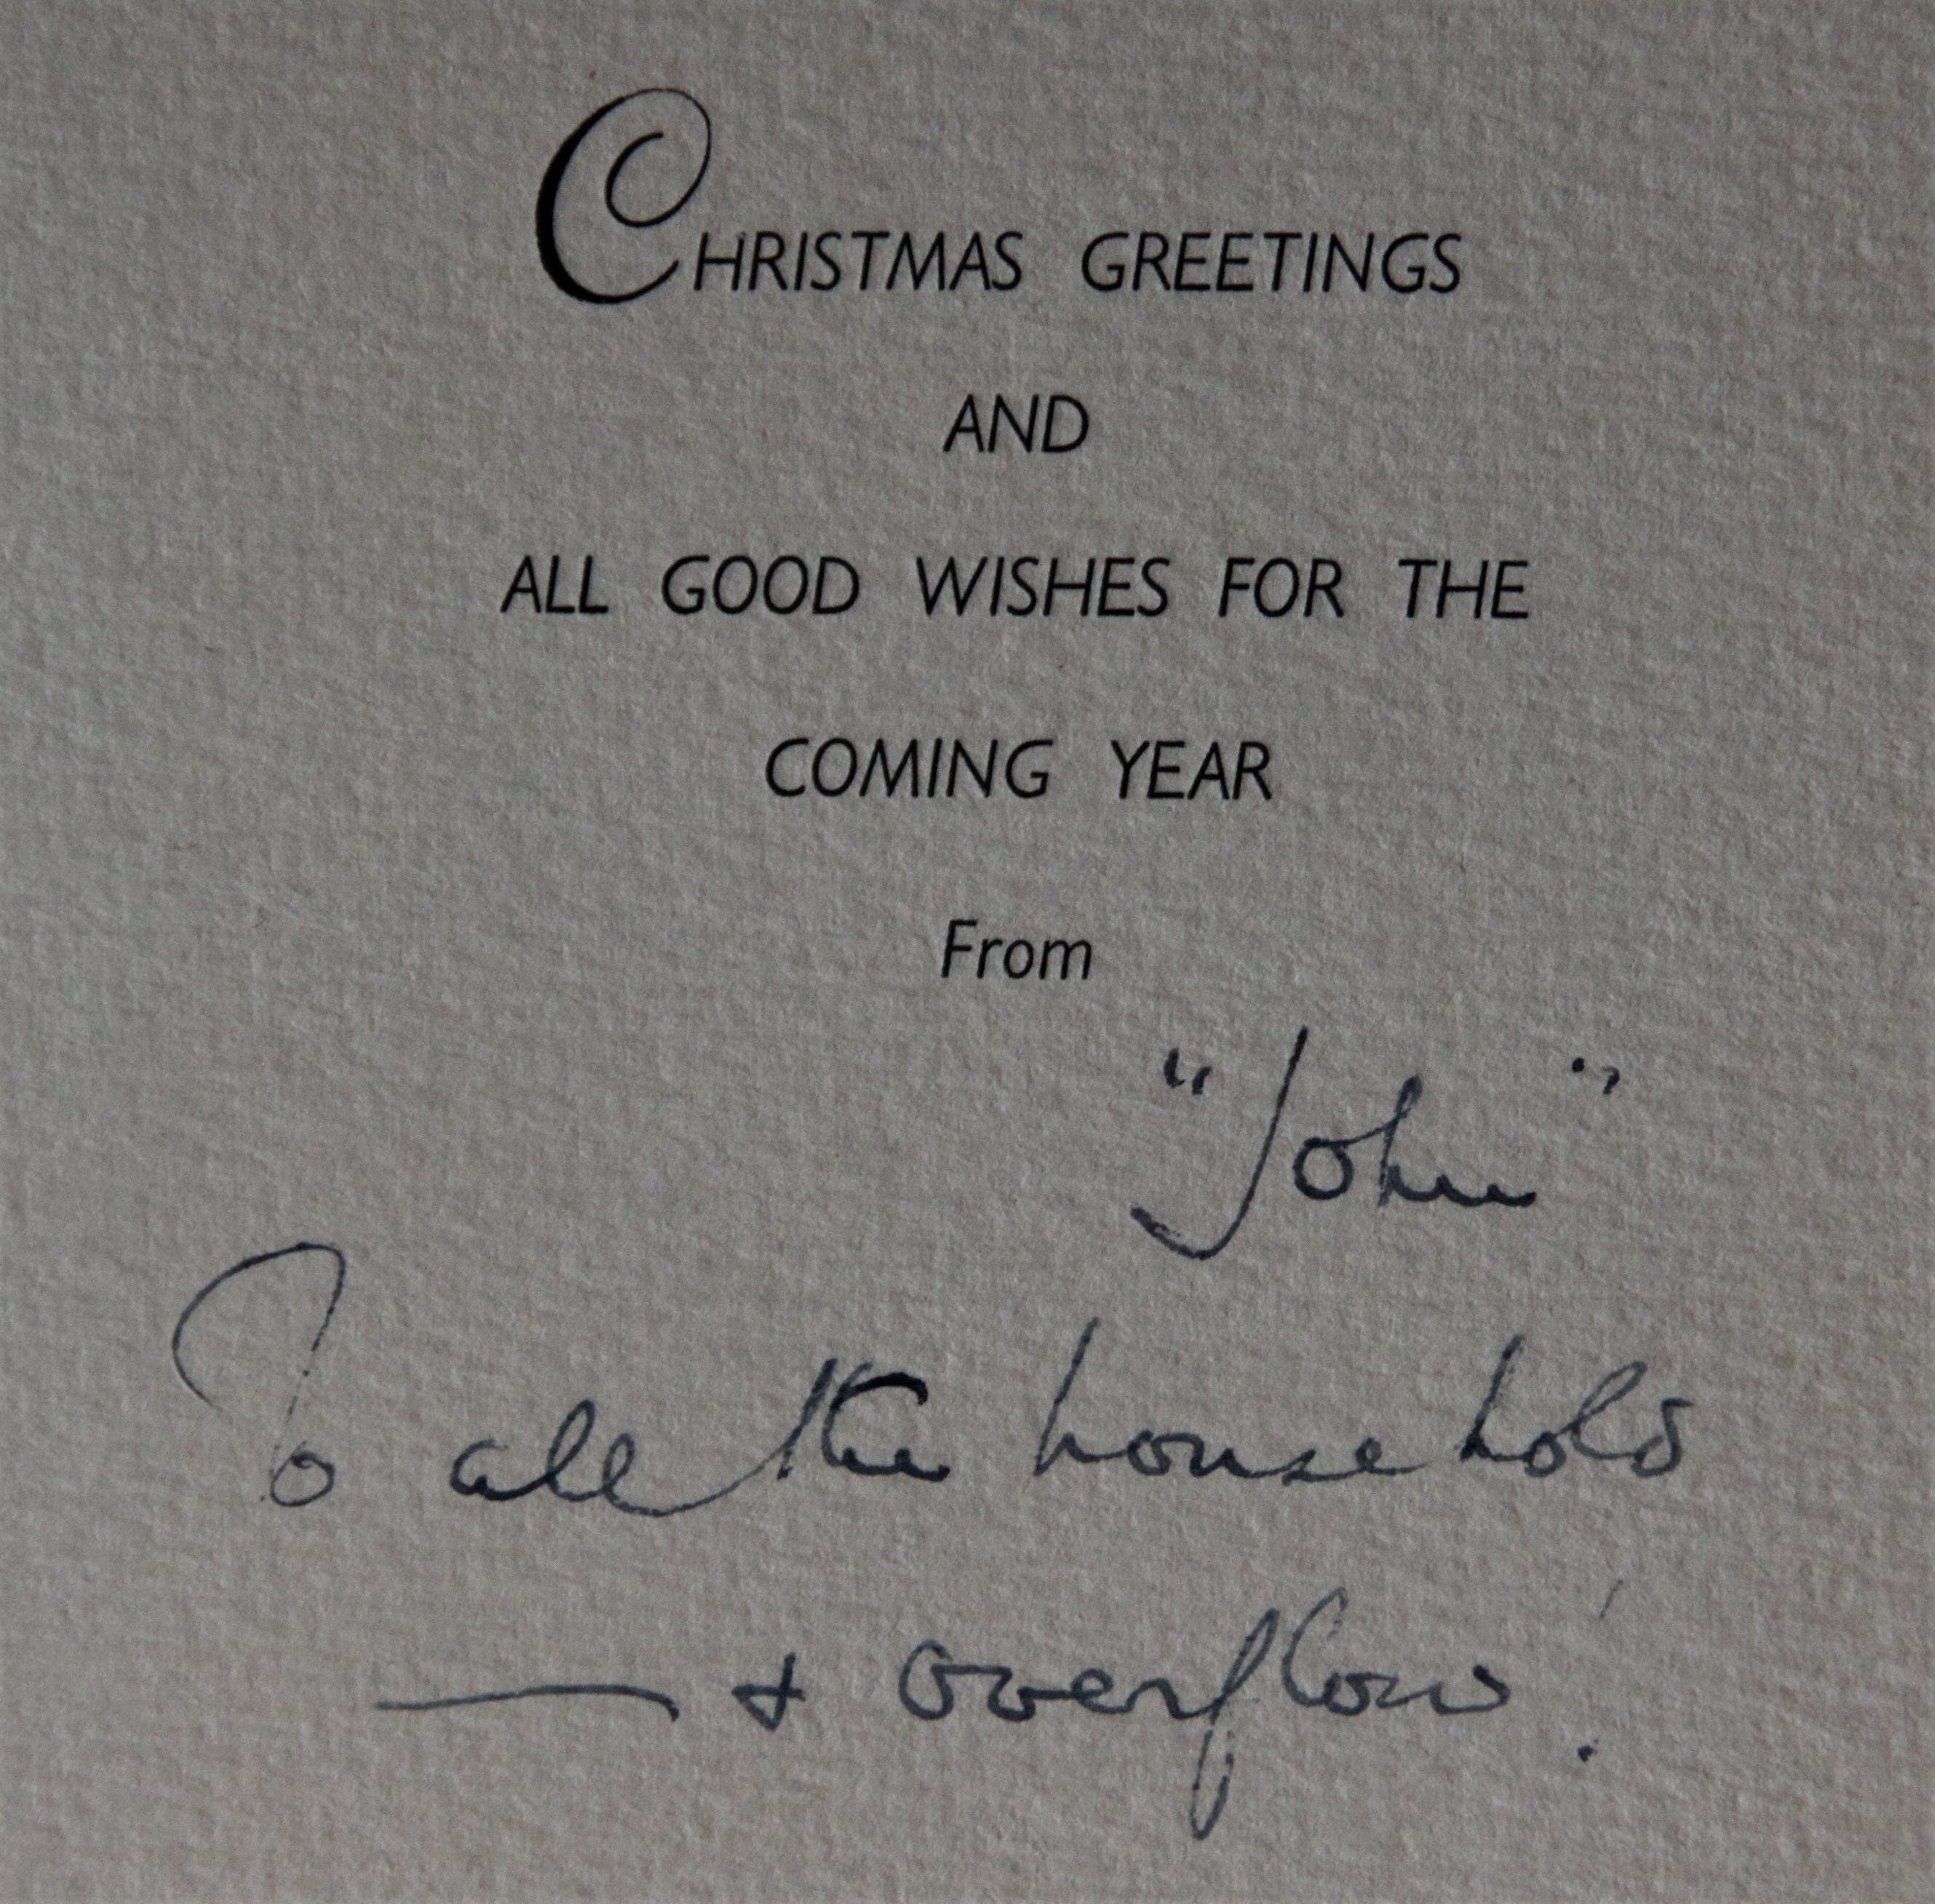 CHRISTMAS GREETINGS
AND
ALL GOOD WISHES FOR THE
COMING YEAR
From
"John"
To all the household
— & overflow!